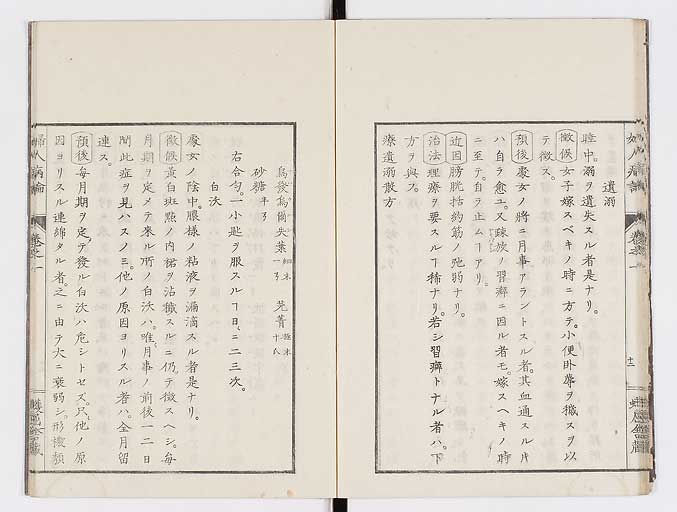 遺溺
睡中。溺ヲ遺失スル者是ナリ。
徴候 女子嫁スベキノ時ニ方テ。小便卧蓐ヲ穢スヲ以
テ徴ス。
預後 處女ノ將ニ月事アラントスル者。其血通スルキ
ハ自ラ愈ユ。又疎放ノ習癖ニ因ル者モ。嫁スヘキノ時
ニ至テ。自ラ止ムヿアリ。
近因 膀胱括約筋ノ弛弱ナリ。
治法 理療ヲ要スルヿ稀ナリ。若シ習癖トナル者ハ。下
方ヲ與フ。
療遺溺散方
烏發烏倔失葉 細末 一弓 芫菁 極末 十八
砂糖 半弓
右合匀。一小匙ヲ服スルヿ日ニ二三次。
白沃
處女ノ陰中。膿様ノ粘液ヲ漏滴スル者是ナリ。
徴候 黄白斑㸃ノ内裙ヲ沾穢スルニ仍テ徴スヘシ。毎
月期ヲ定メテ來ル所ノ白沃ハ。唯月事ノ前後一二日
間此症ヲ見ハスノミ。他ノ原因ヨリスル者ハ。全月留
連ス。
預後 毎月期ヲ定テ發ル白沃ハ危シトセズ。只他ノ原
因ヨリスル連綿タル者。之ニ由テ大ニ衰弱シ。形
婦人病論
卷之一
十二